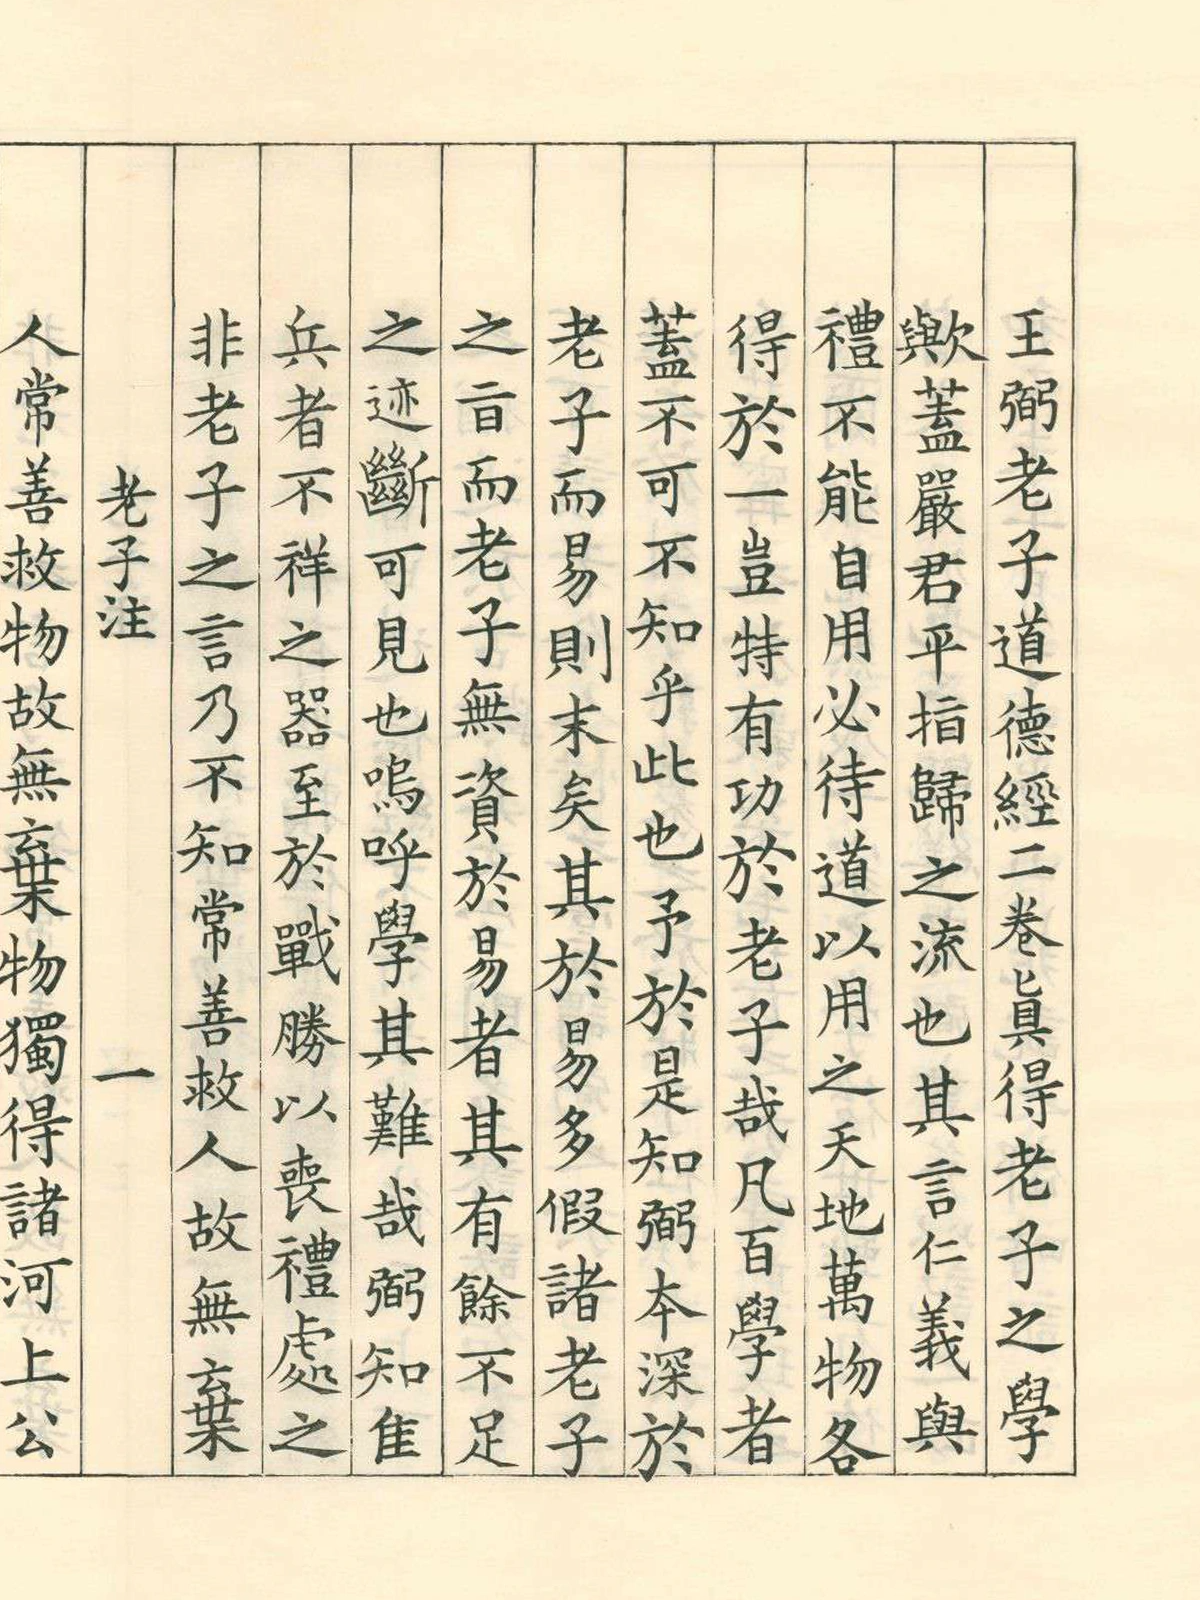 王弼老子道德經二卷眞得老子之學
歟蓋嚴君平指歸之流也其言仁義與
禮不能自用必待道以用之天地萬物各
得於一豈特有功於老子哉凡百學者
蓋不可不知乎此也予於是知弼本深於
老子而易則末矣其於易多假諸老子
之旨而老子無資於易者其有餘不足
之迹斷可見也嗚呼學其難哉弼知隹
兵者不祥之器至於戰勝以喪禮處之
非老子之言乃不知常善救人故無棄
老子注 一
人常善救物故無棄物獨得諸河上公